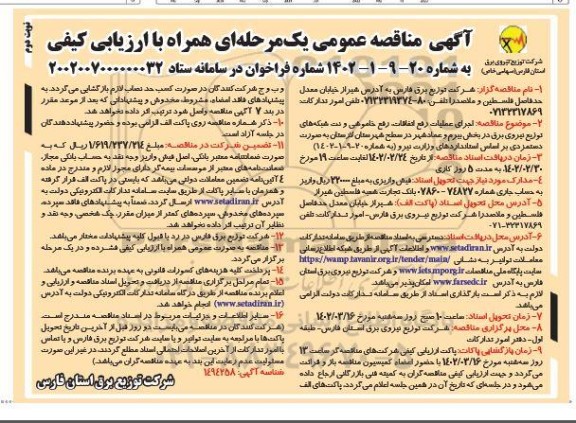 نوبت دوم
آگهی مناقصه عمومی یک‌مرحله‌ای همراه با ارزیابی کیفی
به شماره ۲۰-۹-۱-۱۴۰۲ شماره فراخوان در سامانه ستاد ۲۰۰۲۰۰۷۰۰۰۰۰۰۰۳۲
شرکت توزیع نیروی برق
استان فارس (سهامی خاص)
۱- نام مناقصه‌گزار: شرکت توزیع برق فارس به آدرس شیراز خیابان معدل
حدفاصل فلسطین و ملاصدرا تلفن: ۸۰-۰۷۱۳۲۳۱۹۳۷۴ تلفن امور تدارکات:
۰۷۱۳۲۳۱۷۸۶۹
۲- موضوع مناقصه: اجرای عملیات رفع اتفاقات، رفع خاموشی و نت شبکه‌های
توزیع نیروی برق در بخش بیرم و عمادشهر در سطح شهرستان لارستان به صورت
دستمزدی بر اساس استانداردهای وزارت نیرو (به شماره ۲۰-۹-۱-۱۴۰۲)
۳- زمان دریافت اسناد مناقصه: از تاریخ ۱۴۰۲/۰۲/۲۴ لغایت ساعت ۱۹ مورخ
۱۴۰۲/۰۲/۳۰ به مدت ۵ روز کاری
۴- مدارک مورد نیاز جهت تحویل اسناد: فیش واریزی به مبلغ ۲۲۰۰۰۰۰ ریال واریز
به حساب جاری شماره ۷۴۸۲۷-۷۸۶۰ بانک تجارت شعبه فلسطین شیراز
۵- آدرس محل تحویل اسناد (پاکت الف): شیراز خیابان معدل حدفاصل
فلسطین و ملاصدرا شرکت توزیع نیروی برق فارس- امور تدارکات تلفن:
۰۷۱-۳۲۳۱۷۸۶۹
۶- آدرس محل دریافت اسناد: دسترسی به اسناد مناقصه از طریق سامانه تدارکات
دولت به آدرس www.setadiran.ir و اطلاعات آگهی از طریق شبکه اطلاع‌رسانی
معاملات توانیر به نشانی https://wamp.tavanir.org.ir/tender/maja/
سایت پایگاه ملی مناقصات www.iets.mporg.ir و شرکت توزیع نیروی برق استان
فارس به آدرس www.farsedc.ir امکان‌پذیر می‌باشد.
لازم به ذکر است بارگذاری اسناد از طریق سامانه تدارکات دولت الزامی
می‌باشد.
۷- زمان تحویل اسناد: ساعت ۱۰ صبح روز سه‌شنبه مورخ ۱۴۰۲/۰۳/۱۶
۸- محل برگزاری مناقصه: شرکت توزیع نیروی برق استان فارس- طبقه
اول- دفتر امور تدارکات
۹- زمان بازگشایی پاکات: پاکت ارزیابی کیفی شرکت‌های مناقصه‌گر ساعت ۱۳
روز سه‌شنبه مورخ ۱۴۰۲/۰۳/۱۶ با حضور اعضاء کمیسیون مناقصه باز و قرائت
می‌گردد و جهت ارزیابی کیفی مناقصه‌گران به کمیته فنی بازرگانی ارجاع داده
می‌شود و در جلسه‌ای که تاریخ آن در همین جلسه اعلام می‌گردد، پاکت‌های الف
و ب و ج شرکت‌کنندگان در صورت کسب حد نصاب لازم بازگشایی می‌گردد. به
پیشنهادهای فاقد امضاء، مشروط، مخدوش و پیشنهاداتی که بعد از موعد مقرر
در بند ۷ آگهی مناقصه واصل شود ترتیب اثر داده نخواهد شد.
۱۰- ذکر شماره مناقصه روی پاکت الف الزامی بوده و حضور پیشنهاددهندگان
در جلسه آزاد است.
۱۱- تضمین شرکت در مناقصه: مبلغ ۱/۶۱۹/۲۳۷/۳۱۴ ریال که به
صورت ضمانتنامه معتبر بانکی، اصل فیش واریز وجه نقد به حساب بانکی مجاز،
ضمانت‌نامه‌های معتبر از موسسات بیمه‌گر دارای مجوز لازم و مندرج در ماده
۴ آئین‌نامه تضمین معاملات دولتی می‌باشد که بایستی در پاکت الف قرار گرفته
و همزمان با سایر پاکات از طریق سایت سامانه تدارکات الکترونیکی دولت به
آدرس www.setadiran.ir ارسال گردد. ضمناً به پیشنهادهای فاقد سپرده،
سپرده‌های مخدوش، سپرده‌های کمتر از میزان مقرر، چک شخصی، وجه نقد و
نظایر آن ترتیب اثر داده نخواهد شد.
۱۲- شرکت توزیع برق فارس در رد یا قبول کلیه پیشنهادات مختار می‌باشد.
۱۳- مناقصه به صورت عمومی همراه با ارزیابی کیفی فشرده و در یک مرحله
برگزار می‌گردد.
۱۴- پرداخت کلیه هزینه‌های کسورات قانونی به عهده برنده مناقصه می‌باشد.
۱۵- تمام مراحل برگزاری مناقصه از دریافت و تحویل اسناد مناقصه و ارزیابی و
اعلام برنده مناقصه از طریق درگاه سامانه تدارکات الکترونیکی دولت به آدرس
(www.setadiran.ir) انجام خواهد شد.
۱۶- سایر اطلاعات و جزئیات مربوط در اسناد مناقصه مندرج است.
(شرکت‌کنندگان در مناقصه می‌بایست دو روز قبل از آخرین تاریخ تحویل
پاکت‌ها با مراجعه به سایت توانیر و یا سایت شرکت توزیع برق فارس و یا تماس
با امور تدارکات از آخرین اصلاحات احتمالی اسناد مطلع گردند. در غیر این صورت
مسئولیت عدم رعایت این بند به عهده مناقصه‌گر می‌باشد.)
شناسه آگهی: ۱۴۹۴۲۵۸
شرکت توزیع برق استان فارس